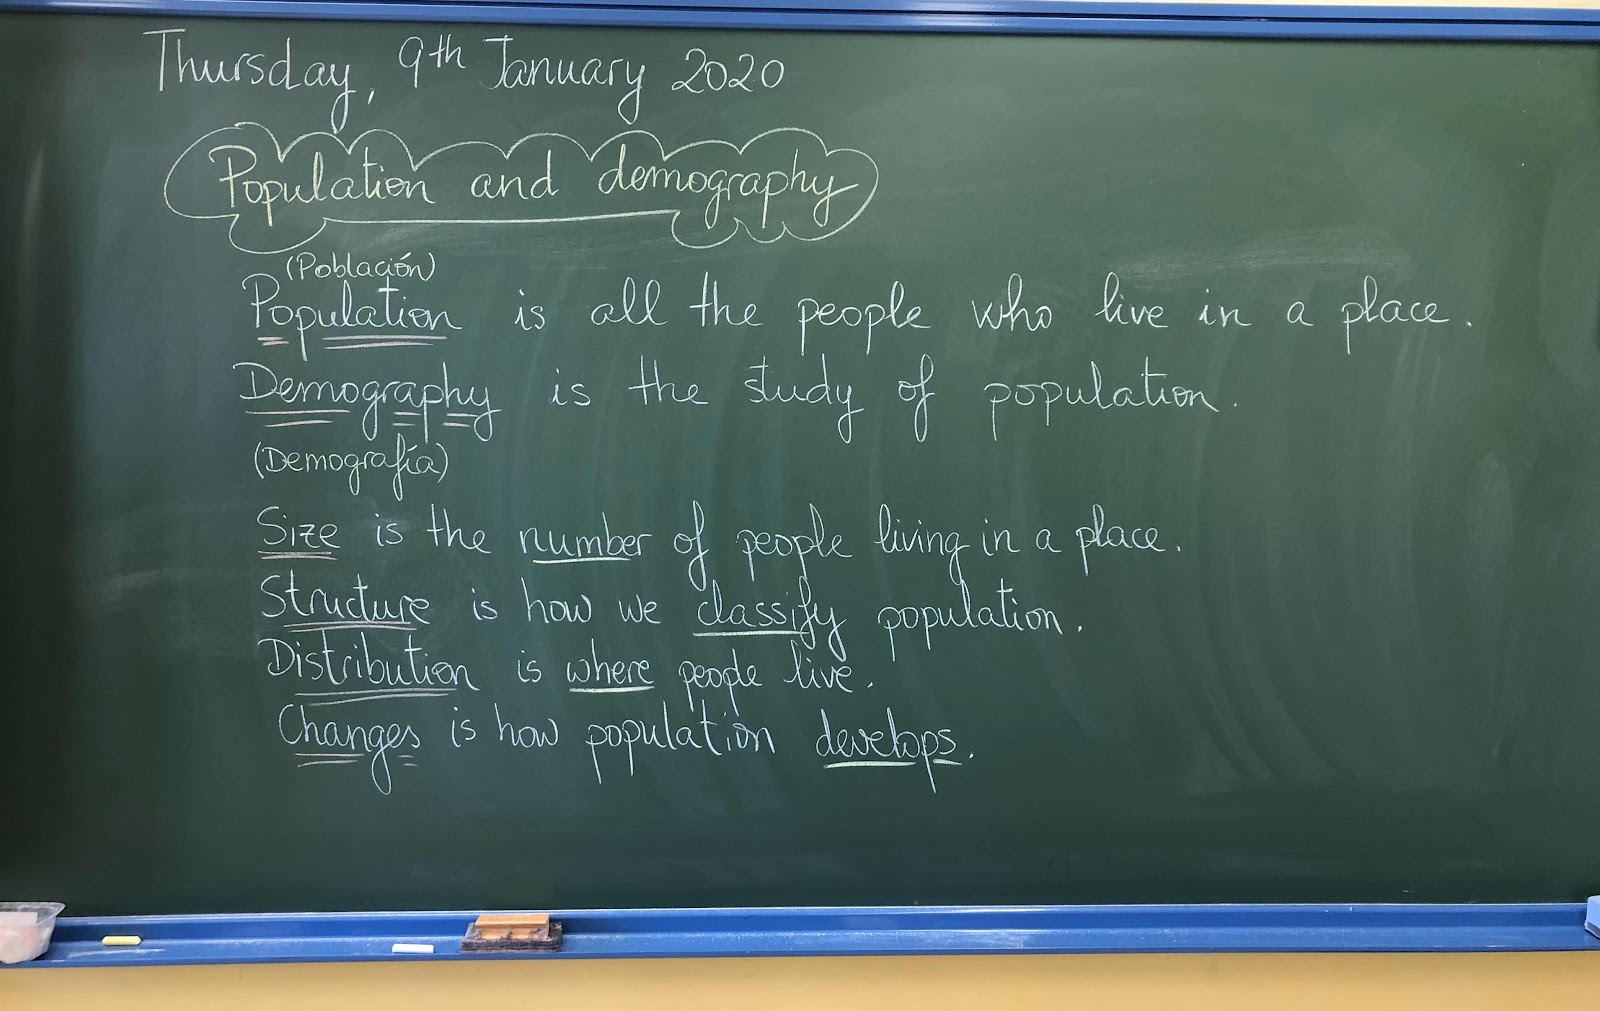 Thursday, 9th January 2020
Population and demography
(Población)
Population is all the people who live in a place.
Demography is the study of population.
(Demografía)
Size is the number of people living in a place.
Structure is how we classify population.
Distribution is where people live.
Changes is how population develops.